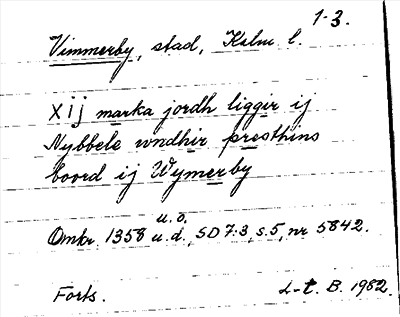 1-3.
Vimmerby, stad, Kalm l.
xij marka jordh liggir ij
Nybbele vndhir presthins
boord ij Wymerby
u.o.
Omkr. 1358 u.d., SD 7:3, s.5, nr 5842.
Forts. L-t. B. 1982.